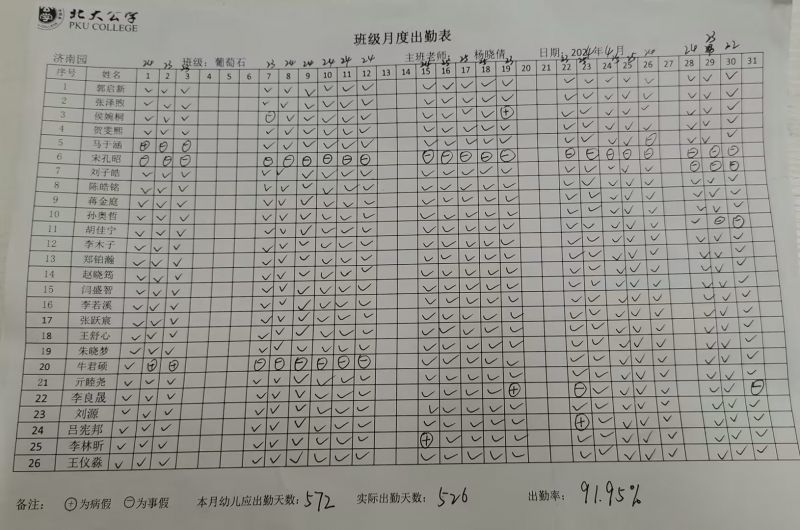 北大公学
PKU COLLEGE
班级月度出勤表
济南园 班级：葡萄石 主班老师： 杨晓倩 日期：2024年4月
24 23 23 24 24 24 24 24 22
序号 姓名 1 2 3 4 5 6 7 8 9 10 11 12 13 14 15 16 17 18 19 20 21 22 23 24 25 26 27 28 29 30 31
1 郭启新 ✓ ✓ ✓ ✓ ✓ ✓ ✓ ✓ ✓ ✓ ✓ ✓ ✓ ✓ ✓ ✓ ✓ ✓ ✓ ✓ ✓ ✓
2 张泽煦
3 侯婉桐
4 贺雯熙
5 马于涵
6 宋孔昭
7 刘子皓
8 陈皓铭
9 蒋金庭
10 孙奥哲
11 胡佳宁
12 李木子
13 郑铂瀚
14 赵晓筠
15 闫盛智
16 李若溪
17 张跃宸
18 王舒心
19 朱晓梦
20 牛君硕
21 亓睦尧
22 李良晟
23 刘源
24 吕宪邦
25 李林昕
26 王仪淼
备注： ⊕为病假 ⊖为事假 本月幼儿应出勤天数：572 实际出勤天数：526 出勤率：91.95%